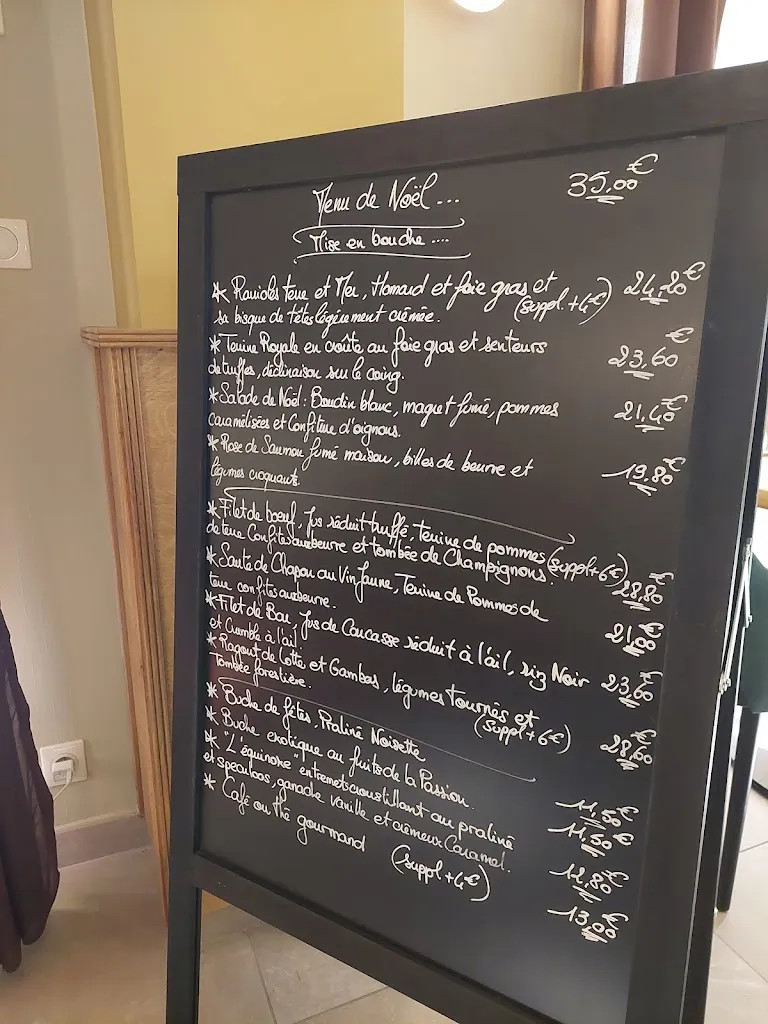 Menu de Noël...
35,00€
Mise en bouche ....
* Ravioles Terre et Mer, Homard et foie gras et (suppl.+4€) 24,20€
sa bisque de têtes légèrement crémée.
* Terrine Royale en croûte au foie gras et senteurs 23,60€
de truffes, déclinaison sur le coing.
* Salade de Noël: Boudin blanc, magret fumé, pommes 21,40€
caramélisées et Confiture d'oignons.
* Rose de Saumon fumé maison, billes de beurre et 19,80€
légumes croquants.
* Filet de boeuf, jus réduit truffé, terrine de pommes (suppl+6€)
de terre Confites au beurre et tombée de Champignons. 28,80€
* Sauté de Chapon au Vin Jaune, Terrine de Pommes de
terre confites au beurre. 21,00€
* Filet de Bar, jus de Carcasse réduit à l'ail, riz Noir 23,60€
et Crumble à l'ail
* Ragout de Lotte et Gambas, légumes tournés et
Tombée forestière. (suppl+6€) 28,60€
* Buche de fêtes, Praliné Noisette 11,50€
* Buche exotique au fruits de la Passion. 11,50€
* "L'équinoxe entremet croustillant au praliné
et speculoos, ganache vanille et crémeux Caramel. 12,80€
* Café ou thé gourmand (suppl+4€) 13,00€